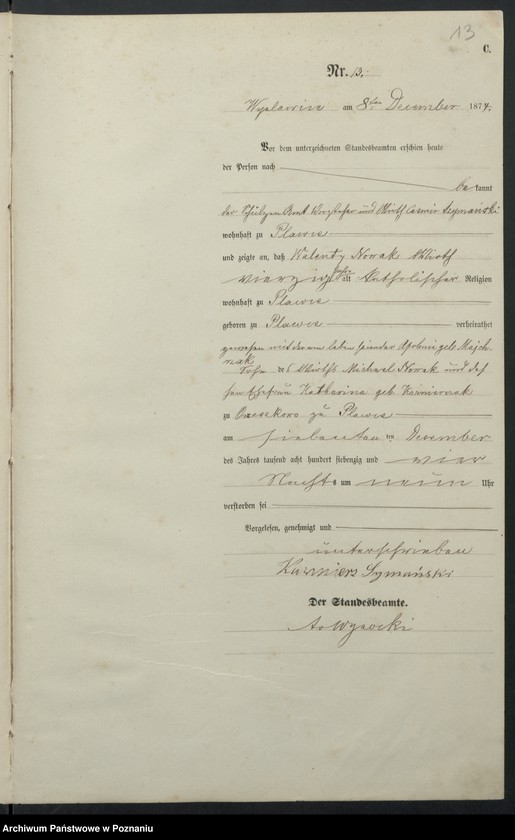 13
C.
Nr. 13.
am 8ten December 1874.
Vor dem unterzeichneten Standesbeamten erschien heute
der Person nach
be kannt
der und Wirth Casmir Szymański
wohnhaft zu Plawce
und zeigte an, daß Walenty Nowak Wirth
vierzig Jahr alt katholischer Religion
wohnhaft zu Plawce
geboren zu Plawce verheirathet
gewesen mit der am Leben geb. Majch-
rzak
Sohn des Wirths Michael Nowak und des-
sen Ehefrau Katharina geb.
zu zu Plawce
am siebenten ten December
des Jahres tausend acht hundert siebenzig und vier
Nachts um neun Uhr
verstorben sei
Vorgelesen, genehmigt und
unterschrieben
Kazmierz Szymański
Der Standesbeamte.
Archiwum Państwowe w Poznaniu